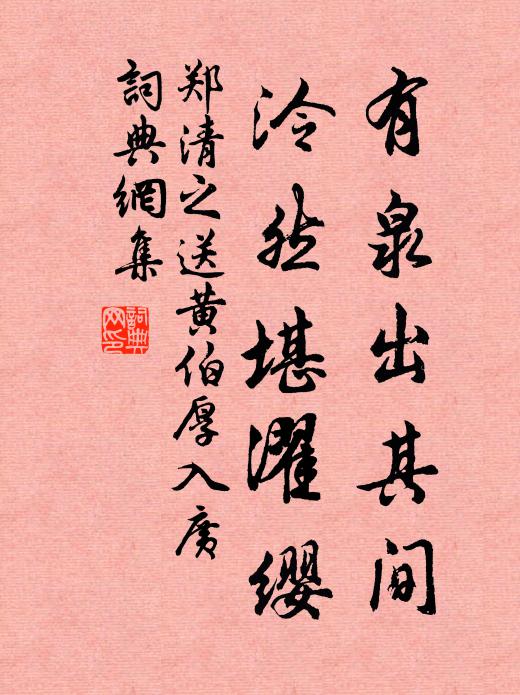 有泉出其间
泠然堪濯缨
郑清之送黄伯厚入广
词典網集
詞典
网印